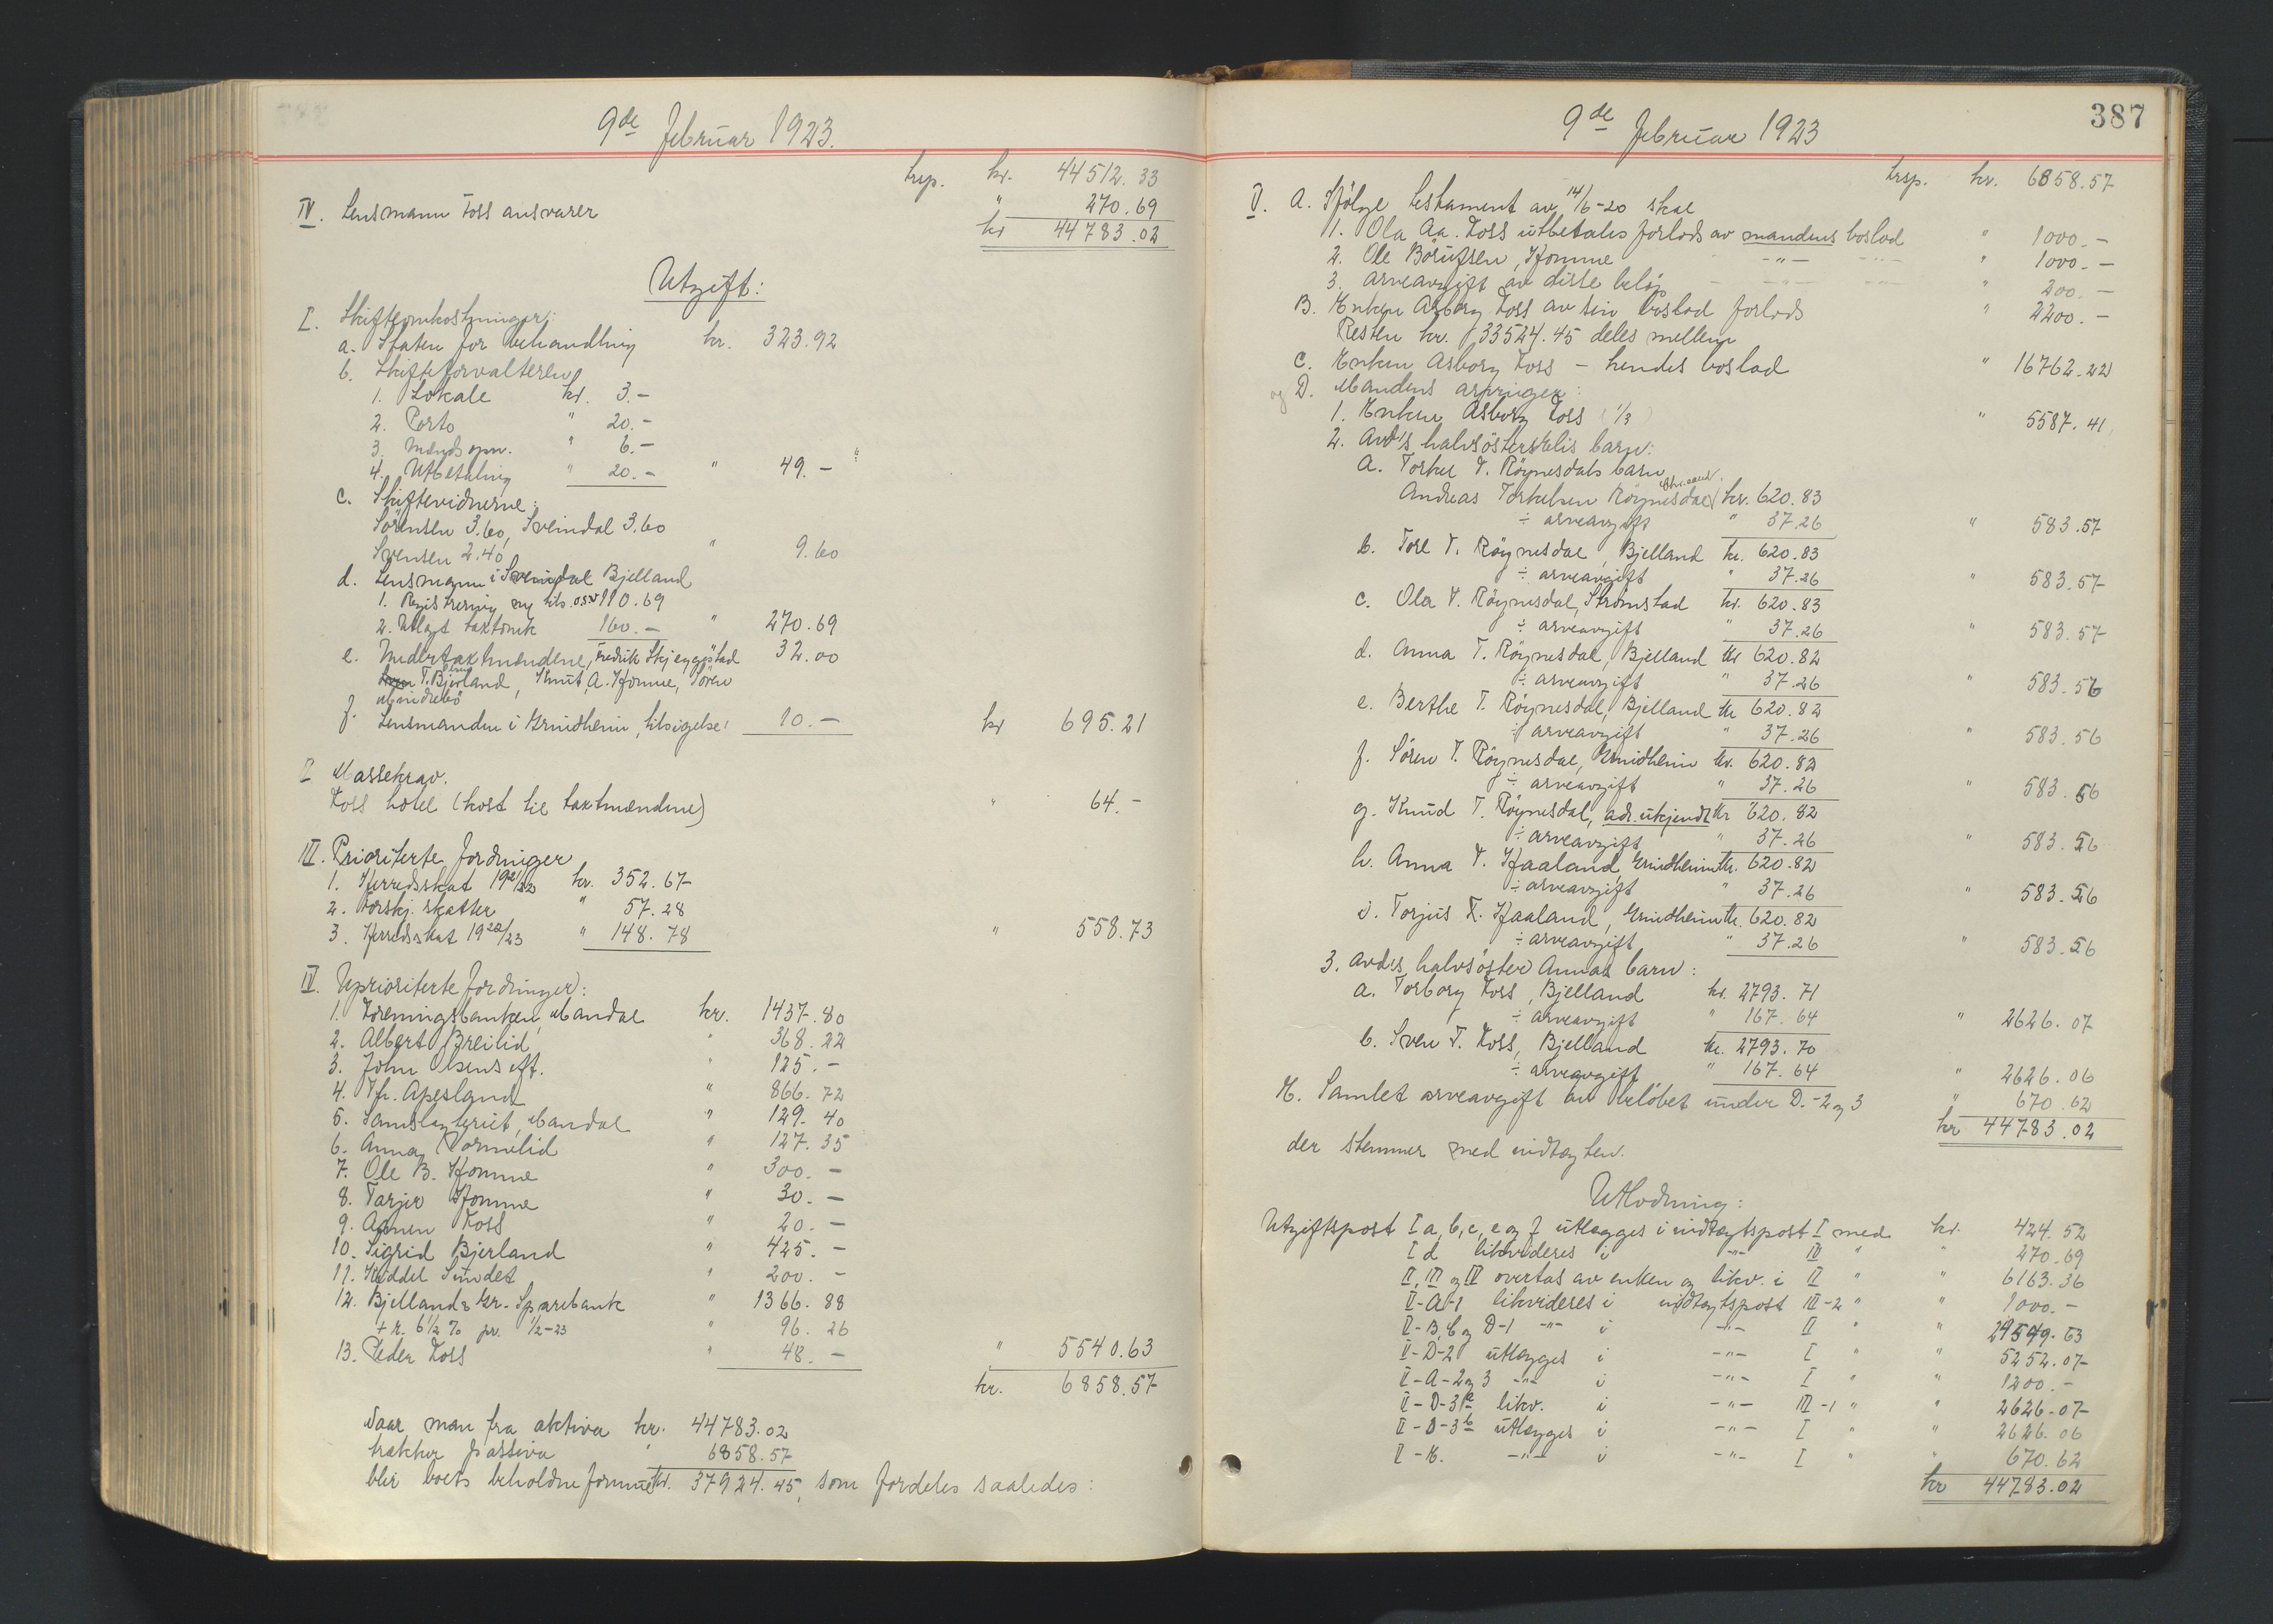 9de Februar 1923.
trsp. kr. 44512.33
IV. Lensmann Foss ansvarer " 270.69
kr 44783.02
Utgift:
I. Skifteomkostninger:
a. Staten for behandling kr. 323.92
b. Skifteforvalteren
1. Lokale kr. 3.-
2. Porto " 20.-
3. " 6.-
4. Utbetaling " 20.- " 49.-
c. Skiftevidnerne:
Sörensen 3.60, Sveindal 3.60
Svensen 2.40 " 9.60
d. Lensmann i Bjelland
1. Registrering og tils. osv 110.69
2. Utlagt takstomk 160.- " 270.69
e. Undertakstmændene, Fredrik Skjeggestad 32.00
T. Bjerland, Knut A. Homme, Sören
f. Lensmanden i Grindheim, tilsigelse: 10.- kr 695.21
II Massekrav.
Foss hotel (kost til takstmændene) " 64.-
III. Prioriterte fordringer
1. Herredsskat 1921/22 kr. 352.67
2. Forskj. skatter " 57.28
3. Herredsskat 1922/23 " 148.78 " 558.73
IV. Uprioriterte fordringer:
1. Foreningsbanken, Mandal kr. 1437.80
2. Albert Breilid " 368.22
3. John Olsens eft. " 125.-
4. Fr. Apesland " 866.72
5. Samslagteriet, Mandal " 129.40
6. Anna Vormelid " 127.35
7. Ole B. Homme " 300.-
8. Tarjer Homme " 30.-
9. Aanen Foss " 20.-
10. Sigrid Bjerland " 425.-
11. Heddel Sundet " 200.-
12. Bjelland & Gr. Sparebank " 1366.88
+ R. 6½ % pr. 1/2-23 " 96.26
13. Peder Foss " 48.- " 5540.63
kr. 6858.57
Naar man fra aktiva kr. 44783.02
trækker passiva " 6858.57
blir boets beholdne formue kr. 37924.45, som fordeles saaledes:
387
9de Februar 1923
trsp. kr. 6858.57
V. A. Ifölge testament av 14/6-20 skal
1. Ola Aa. Foss utbetales forlods av mandens boslod " 1000.-
2. Ole Börufsen, Homme -"- -"- " 1000.-
3. arveavgift av disse belöp - -"- -"- " 200.-
B. Enken Asborg Foss av sin boslod forlods " 2200.-
Resten kr. 33524.45 deles mellem
C. Enken Asborg Foss - hendes boslod " 16762.22
og D. Mandens arvinger:
1. Enken Asborg Foss (1/3) " 5587.41
2. Avd's halvsösters barn:
a. Torkel T. Röynesdals barn
Andreas Torkelsen Röynesdal kr. 620.83
÷ arveavgift " 37.26 " 583.57
b. Tore T. Röynesdal, Bjelland kr. 620.83
÷ arveavgift " 37.26 " 583.57
c. Ola T. Röynesdal, Strömstad kr. 620.83
÷ arveavgift " 37.26 " 583.57
d. Anna T. Röynesdal, Bjelland kr 620.82
÷ arveavgift " 37.26 " 583.56
e. Berthe T. Röynesdal, Bjelland kr 620.82
÷ arveavgift " 37.26 " 583.56
f. Sören T. Röynesdal, Grindheim kr. 620.82
÷ arveavgift " 37.26 " 583.56
g. Knud T. Röynesdal, adr. ukjendt kr 620.82
÷ arveavgift " 37.26 " 583.56
h. Anna T. Haaland, Grindheim kr. 620.82
÷ arveavgift " 37.26 " 583.56
i. Torjus T. Haaland, Grindheim kr. 620.82
÷ arveavgift " 37.26 " 583.56
3. avd's halvsöster Annas barn:
a. Torborg Foss, Bjelland kr. 2793.71
÷ arveavgift " 167.64 " 2626.07
b. Sven T. Foss, Bjelland kr. 2793.70
÷ arveavgift " 167.64 " 2626.06
E. Samlet arveavgift av belöbet under D.-2 og 3 " 670.62
kr 44783.02
der stemmer med indtægten.
Utlodning:
Utgiftspost I a, b, c, e og f utlægges i indtægtspost I med kr. 424.52
I d likvideres i -"- IV " " 270.69
II, III og IV overtas av enken og likv. i II " " 6163.36
V-A-1 likvideres i indtægtspost III-2 " " 1000.-
V-B, C og D-1 -"- i -"- II " " 24549.63
V-D-2 utlægges i -"- I " " 5252.07
V-A-2 og 3 -"- i -"- I " " 1200.-
V-D-3a likv. i -"- III-1 " " 2626.07
V-D-3b utlægges i -"- I " " 2626.06
V-E. -"- i -"- I " " 670.62
kr 44783.02